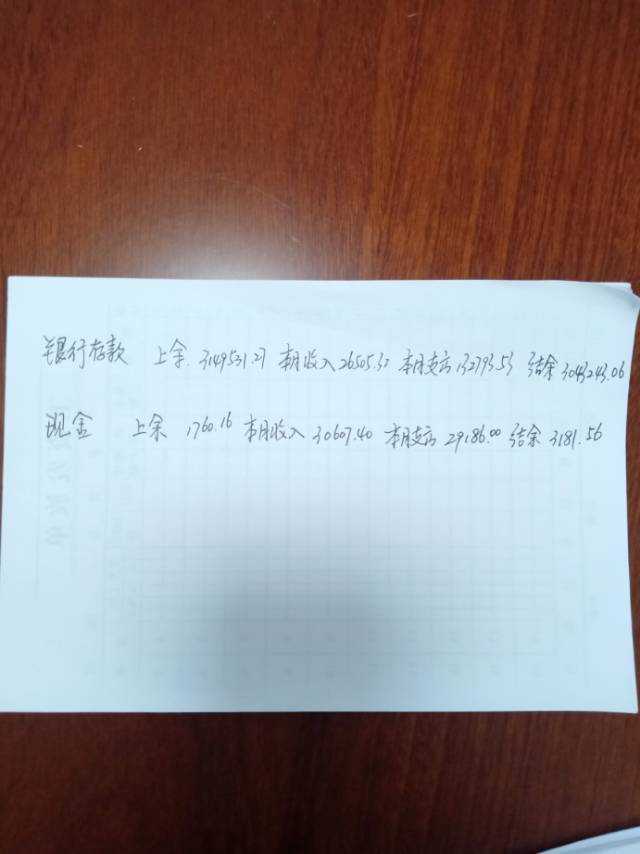 银行存款 上余. 3149531.27 本月收入 26505.32 本月支出 132793.53 结余 3043243.06
现金 上余 1760.16 本月收入 30607.40 本月支出 29186.00 结余 3181.56